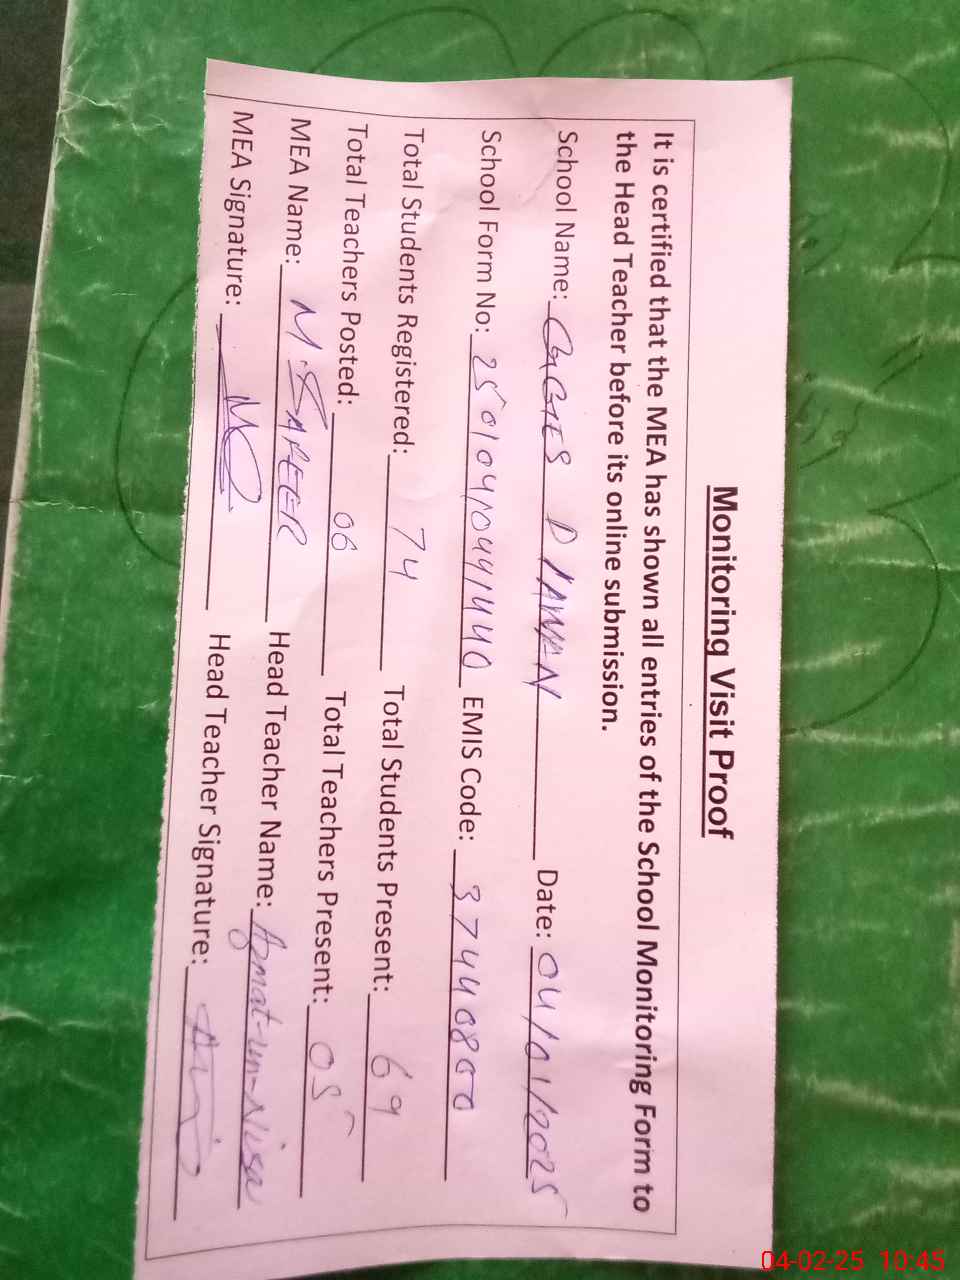 Monitoring Visit Proof
It is certified that the MEA has shown all entries of the School Monitoring Form to
the Head Teacher before its online submission.
School Name: GGES Date: 04/01/2025
School Form No: EMIS Code: 37440800
Total Students Registered: 74 Total Students Present: 69
Total Teachers Posted: 06 Total Teachers Present: 05
MEA Name: M. Head Teacher Name: Azmat-un-Nisa
MEA Signature: Head Teacher Signature:
04-02-25 10:45